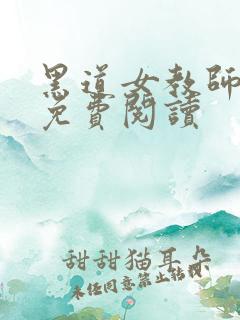 黑道女教師
免費閱讀
甜甜猫耳朵
未经同意禁止转载